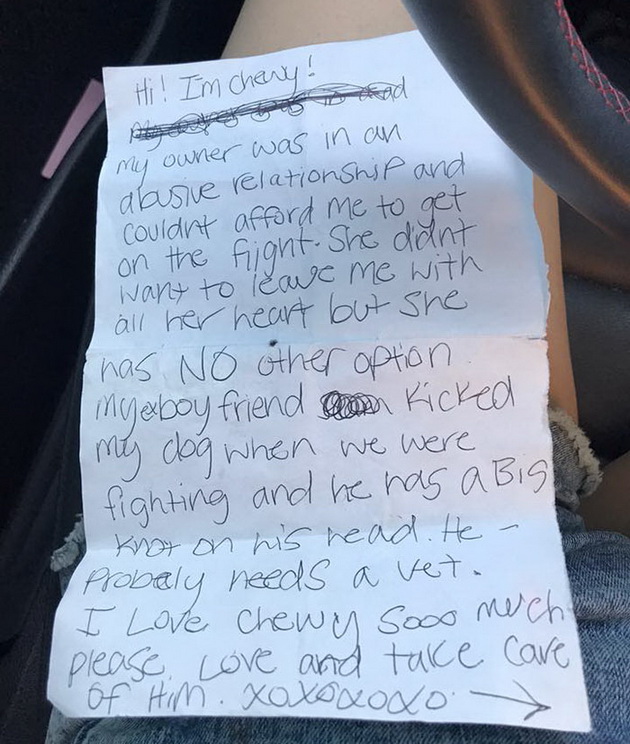 Hi! I'm chewy!
my owner was in an
abusive relationship and
couldnt afford me to get
on the flight. She didnt
want to leave me with
all her heart but she
has NO other option.
My ex boyfriend kicked
my dog when we were
fighting and he has a Big
knot on his head. He -
Probaly needs a vet.
I Love chewy sooo much
please love and take care
of Him. xoxoxoxo. →